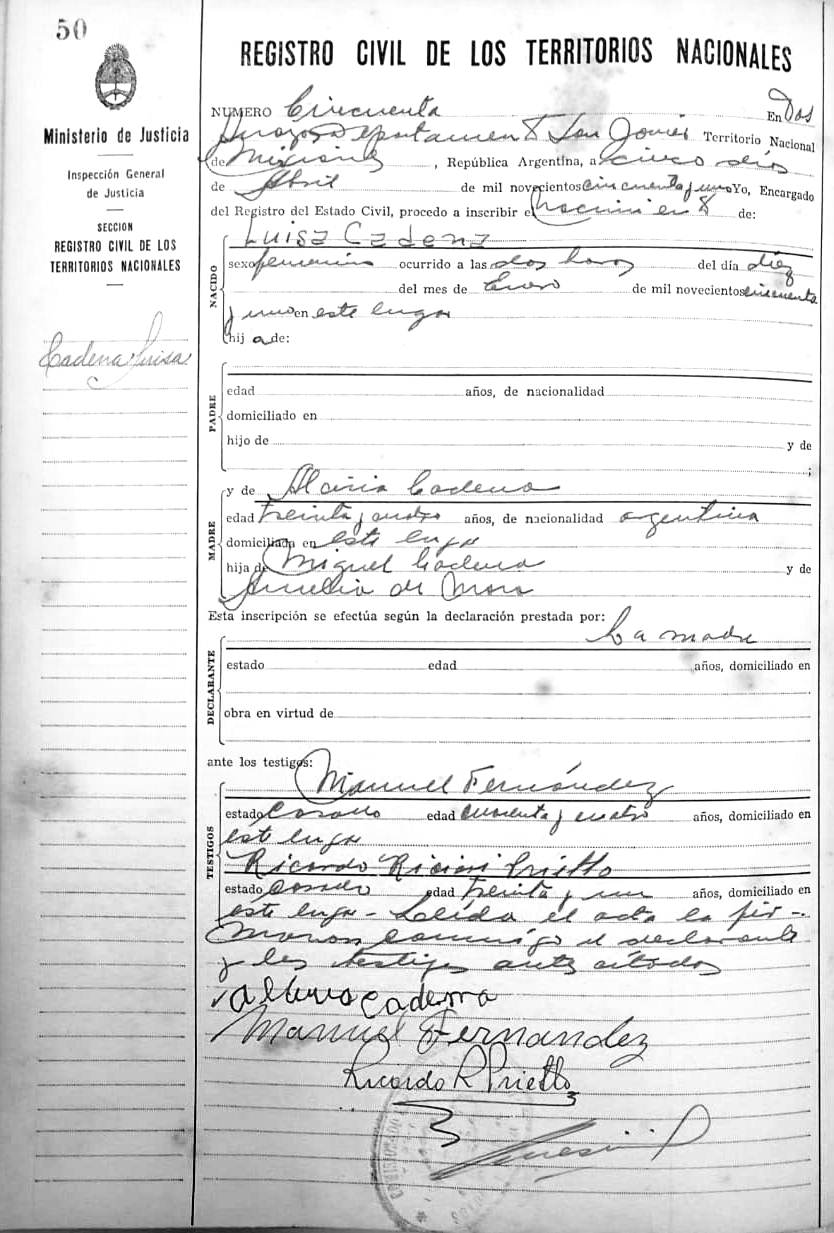 50
REGISTRO CIVIL DE LOS TERRITORIOS NACIONALES
Ministerio de Justicia
Inspección General
de Justicia
SECCION
REGISTRO CIVIL DE LOS
TERRITORIOS NACIONALES
Cadena Luisa
NUMERO Cincuenta En Dos
Departamento San Javier Territorio Nacional
de Misiones, República Argentina, a cinco días
de Abril de mil novecientos cincuenta y uno Yo, Encargado
del Registro del Estado Civil, procedo a inscribir el nacimiento de:
Luisa Cadena
NACIDO
sexo femenino ocurrido a las dos horas del día diez
del mes de Enero de mil novecientos cincuenta
y uno en este lugar
hij a de:
PADRE
edad años, de nacionalidad
domiciliado en
hijo de y de
;
MADRE
y de Cadena
edad treinta y cuatro años, de nacionalidad argentina
domiciliada en este lugar
hija de Miguel Cadena y de
Amelia de Mora
Esta inscripción se efectúa según la declaración prestada por:
La madre
DECLARANTE
estado edad años, domiciliado en
obra en virtud de
ante los testigos:
Manuel Fernández
TESTIGOS
estado casado edad cuarenta y cuatro años, domiciliado en
este lugar
Ricardo Prietto
estado casado edad treinta y un años, domiciliado en
este lugar - Leída el acta la fir-
maron conmigo el declarante
y los testigos antes citados
Cadena
Manuel Fernandez
Ricardo R Prietto